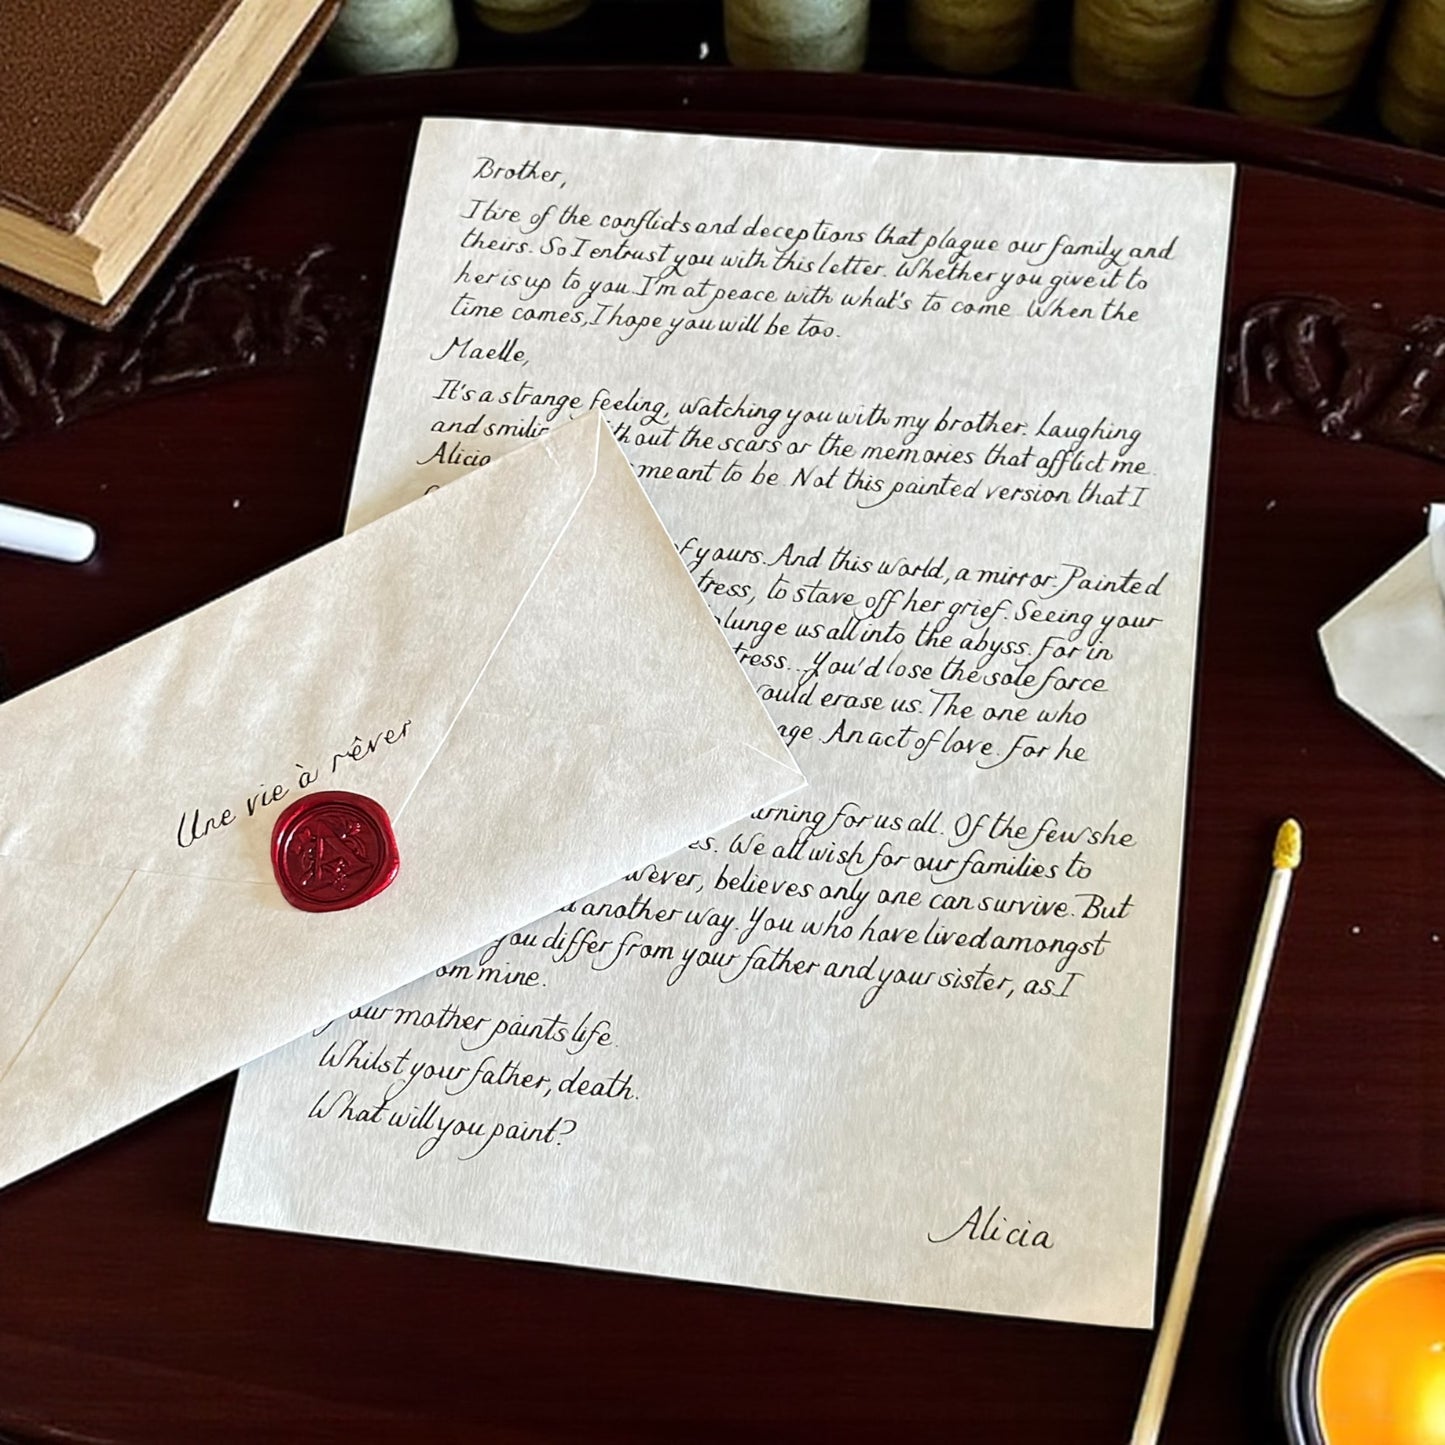 Brother,
I tire of the conflicts and deceptions that plague our family and
theirs. So I entrust you with this letter. Whether you give it to
her is up to you. I'm at peace with what's to come. When the
time comes, I hope you will be too.
Maelle,
It's a strange feeling, watching you with my brother. Laughing
and smiling without the scars or the memories that afflict me.
Alicia meant to be. Not this painted version that I
of yours. And this world, a mirror. Painted
to stave off her grief. Seeing your
plunge us all into the abyss. For in
You'd lose the sole force
would erase us. The one who
An act of love. For he
for us all. Of the few she
We all wish for our families to
believes only one can survive. But
another way. You who have lived amongst
you differ from your father and your sister, as I
mine.
Your mother paints life.
Whilst your father, death.
What will you paint?
Alicia
Une vie à rêver